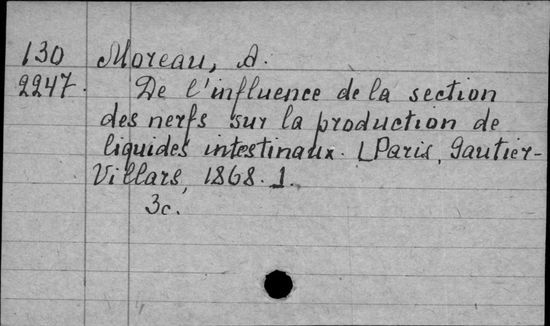 130 Moreau, A.
2247. De l'influence de la section
des nerfs sur la production de
liquides intestinaux. [Paris, Gautier-
Villars, 1868. 1.
3c.